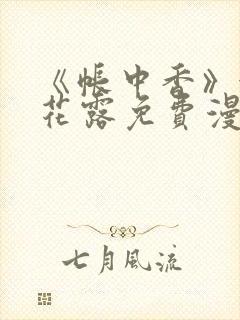 《帐中香》
花露免费漫
七月风流